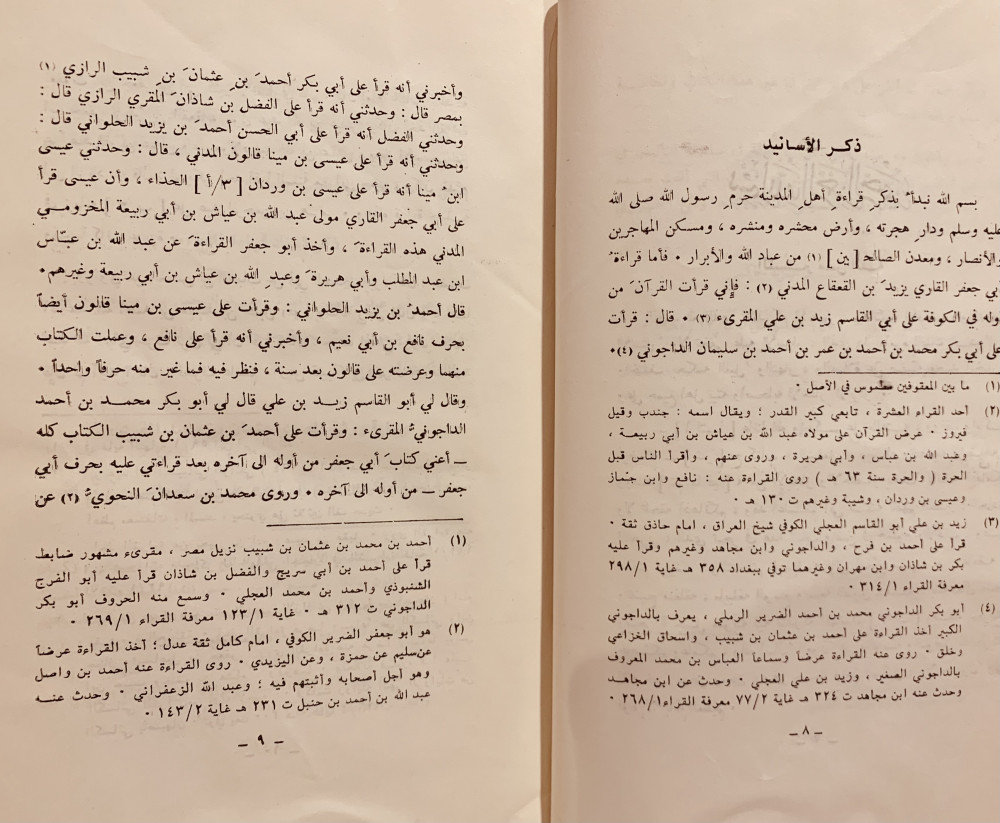 ذكر الأسانيد
بسم الله نبدأ بذكرِ قراءةِ أهلِ المدينة حرمِ رسول الله صلى الله
عليه وسلم ودارِ هجرته ، وأرض محشره ومنشره ، ومسكن المهاجرين
والأنصار ، ومعدن الصالحـ[ـين] (١) من عباد الله والأبرار ٠ فأما قراءةُ
أبي جعفر القاري يزيدَ بن القعقاع المدني (٢) : فإِني قرأت القرآنَ من
أوله في الكوفة على أبي القاسم زيد بن علي المقرىء (٣) ٠ قال : قرأت
على أبي بكر محمد بن أحمد بن عمر بن أحمد بن سليمان الداجوني (٤)٠
(١) ما بين المعقوفين مطموس في الأصل ٠
(٢) أحد القراء العشرة ، تابعي كبير القدر ؛ ويقال اسمه : جندب وقيل
فيروز ٠ عرض القرآن على مولاه عبد الله بن عياش بن أبي ربيعة ،
وعبد الله بن عباس ، وأبي هريرة ، وروى عنهم ، وأقرأ الناس قبل
الحرة ( والحرة سنة ٦٣ هـ ) روى القراءة عنه : نافع وابن جماز
وعيسى بن وردان ، وشيبة وغيرهم ت ١٣٠ هـ ٠
(٣) زيد بن علي أبو القاسم العجلي الكوفي شيخ العراق ، امام حاذق ثقة ٠
قرأ على أحمد بن فرح ، والداجوني وابن مجاهد وغيرهم وقرأ عليه
بكر بن شاذان وابن مهران وغيرهما توفي ببغداد ٣٥٨ هـ غاية ٢٩٨/١
معرفة القراء ٣١٤/١ ٠
(٤) أبو بكر الداجوني محمد بن أحمد الضرير الرملي ، يعرف بالداجوني
الكبير أخذ القراءة على أحمد بن عثمان بن شبيب ، واسحاق الخزاعي
وخلق ٠ روى عنه القراءة عرضا وسماعا العباس بن محمد المعروف
بالداجوني الصغير ، وزيد بن علي العجلي ٠ وحدث عن ابن مجاهد
وحدث عنه ابن مجاهد ت ٣٢٤ هـ غاية ٧٧/٢ معرفة القراء ٢٦٨/١ ٠
ــ ٨ ــ
وأخبرني أنه قرأ على أبي بكر أحمدَ بنِ عثمانَ بنِ شبيب الرازي (١)
بمصر قال : وحدثني أنه قرأ على الفضل بن شاذانَ المقري الرازي قال :
وحدثني الفضل أنه قرأ على أبي الحسن أحمدَ بن يزيد الحلواني قال :
وحدثني أنه قرأ على عيسى بن مينا قالون المدني ، قال : وحدثني عيسى
ابنُ مينا أنه قرأ على عيسى بن وردان [ ٣/أ ] الحذاء ، وأن عيسى قرأ
على أبي جعفر القاري مولى عبد الله بن عياش بن أبي ربيعة المخزومي
المدني هذه القراءةَ ، وأخذ أبو جعفر القراءةَ عن عبد الله بن عبّاس
ابن عبد المطلب وأبي هريرةَ وعبدِ الله بن عياش بن أبي ربيعة وغيرهم٠
قال أحمدُ بن يزيد الحلواني : وقرأت على عيسى بن مينا قالون أيضاً
بحرف نافع بن أبي نعيم ، وأخبرني أنه قرأ على نافع ، وعملت الكتاب
منهما وعرضته على قالون بعد سنة ، فنظر فيه فما غير منه حرفاً واحداً ٠
وقال لي أبو القاسم زيد بن علي قال لي أبو بكر محمد بن أحمد
الداجونيُّ المقرىء : وقرأت على أحمدَ بن عثمان بن شبيب الكتاب كله
ــ أعني كتابَ أبي جعفر من أوله الى آخره بعد قراءتي عليه بحرف أبي
جعفر ــ من أوله الى آخره ٠ وروى محمد بن سعدانَ النحويُّ (٢) عن
(١) أحمد بن محمد بن عثمان بن شبيب نزيل مصر ، مقرىء مشهور ضابط
قرأ على أحمد بن أبي سريج والفضل بن شاذان قرأ عليه أبو الفرج
الشنبوذي وأحمد بن محمد العجلي ٠ وسمع منه الحروف أبو بكر
الداجوني ت ٣١٢ هـ ٠ غاية ١٢٣/١ معرفة القراء ٢٦٩/١ ٠
(٢) هو أبو جعفر الضرير الكوفي ، امام كامل ثقة عدل ؛ أخذ القراءة عرضاً
عن سليم عن حمزة ، وعن اليزيدي ٠ روى القراءة عنه أحمد بن واصل
وهو أجل أصحابه وأثبتهم فيه ؛ وعبد الله الزعفراني ٠ وحدث عنه
عبد الله بن أحمد بن حنبل ت ٢٣١ هـ غاية ١٤٣/٢ ٠
ــ ٩ ــ